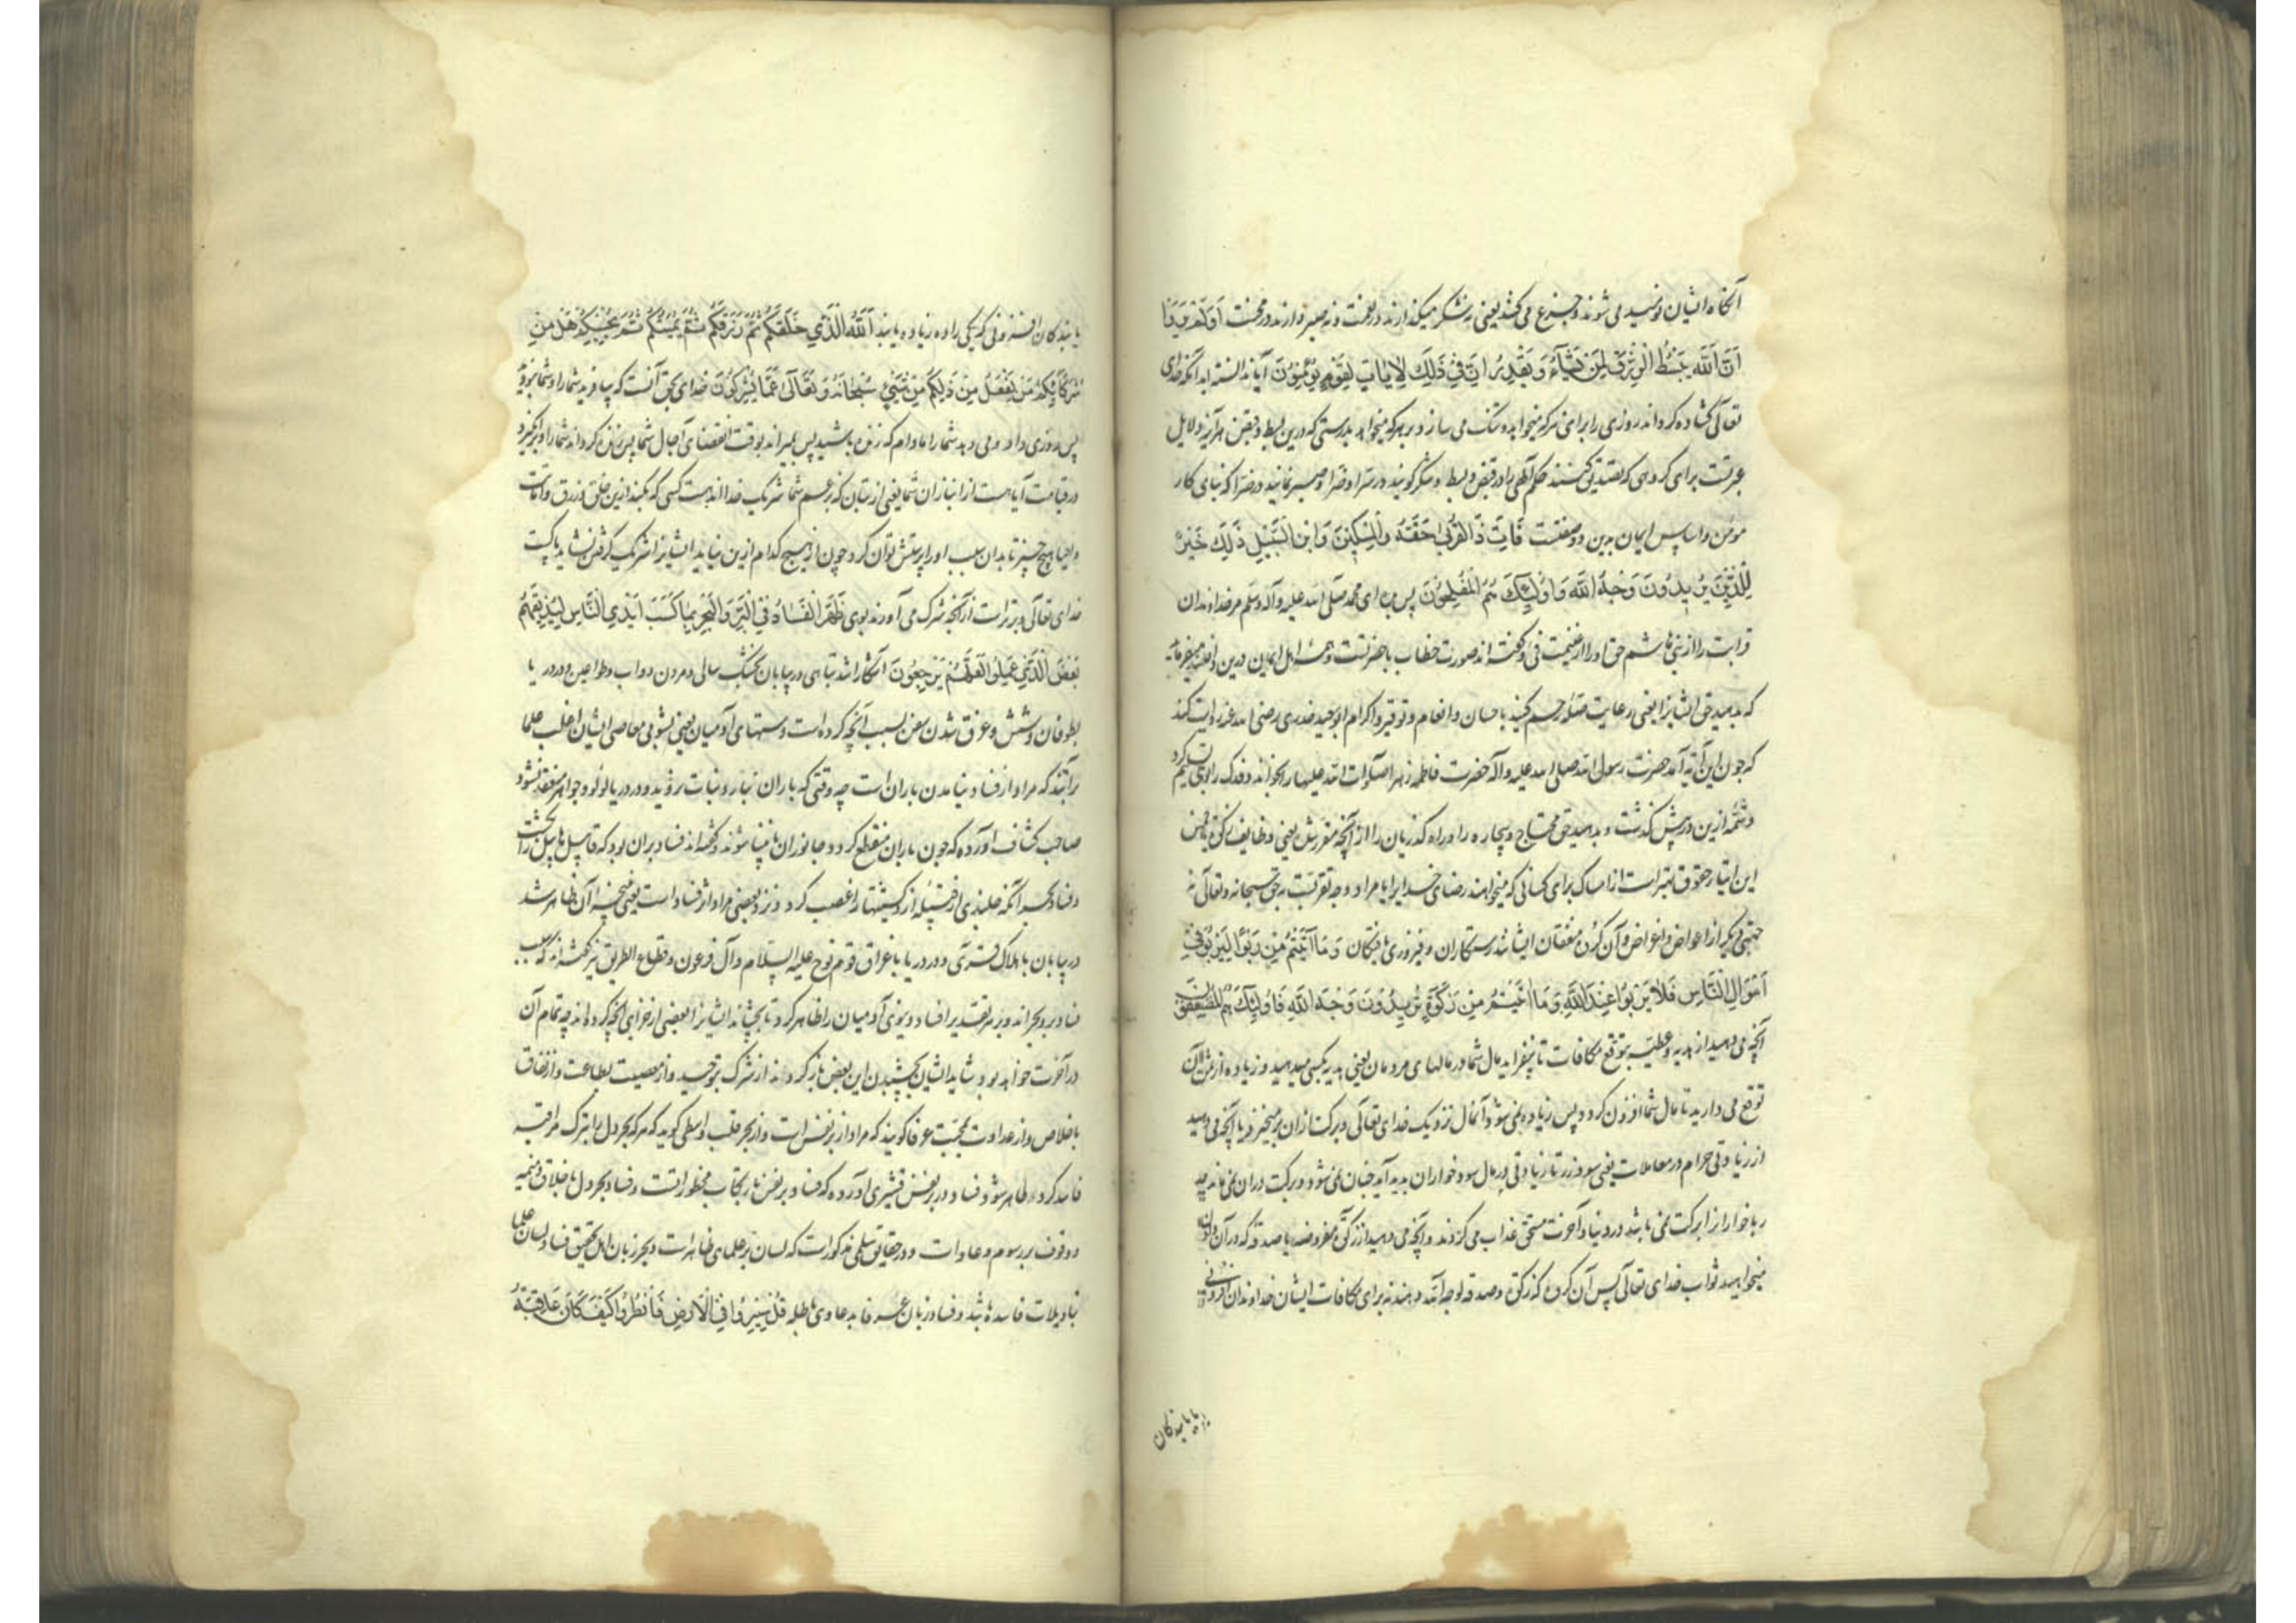 آنگاه ایشان نومید می شوند و جزع می کنند یعنی نه شکر میگذارند در نعمت و نه صبر دارند در محنت اَوَلَمْ یَرَوْا
اَنَّ اللّٰهَ یَبْسُطُ الرِّزْقَ لِمَنْ یَشَآءُ وَ یَقْدِرُ اِنَّ فِی ذٰلِکَ لَاٰیَاتٍ لِقَوْمٍ یُؤْمِنُونَ آیا ندانسته اند آنکه خدای
تعالی گشاده گرداند روزی را برای هر که میخواهد و تنک می سازد بر هر که میخواهد بدرستی که درین بسط و قبض هر آینه دلایل
عبرتست برای گروهی که تصدیق کنند حکم الهی را در قبض و بسط و شکر گویند در سرا و ضرا و صبر نمایند در ضرا که بنای کار
مومن و اساس ایمان برین دو صفتست فَاٰتِ ذَا الْقُرْبٰی حَقَّهُ وَالْمِسْکِینَ وَ ابْنَ السَّبِیلِ ذٰلِکَ خَیْرٌ
لِلَّذِینَ یُرِیدُونَ وَجْهَ اللّٰهِ وَ اُولٰٓئِکَ هُمُ الْمُفْلِحُونَ پس بده ای محمد صلی الله علیه و آله وسلم مر خداوندان
قرابت را از بنی هاشم حق او را از غنیمت و فی و گفته اند صورت خطاب با حضرتست و همه اهل ایمان درین داخلند میفرماید
که بدهید حق ایشانرا یعنی رعایت صله رحم کنید باحسان و انعام و توقیر و اکرام ابو سعید خدری رضی الله عنه روایت کند
که چون این آیه آمد حضرت رسول الله صلی الله علیه و آله حضرت فاطمه زهرا صلوات الله علیها را بخواند و فدک را بوی تسلیم کرد
و تتمه ازین در پیش گذشت و بدهید حق محتاج و بیچاره را و راه گذریان را از آنچه مقررش یعنی وظایف زکوة یا خمس
این ایتار حقوق بهتر است از امساک برای کسانی که میخواهند رضای خدایرا یا مراد وجه تقربت به حق سبحانه و تعالی نه
جهتی دیگر از اعواض و اغراض و آن گروه منفقان ایشانند رستگاران و فیروزی یافتگان وَ مَا اٰتَیْتُمْ مِنْ رِبًوا لِیَرْبُوَ فِی
اَمْوَالِ النَّاسِ فَلَا یَرْبُوا عِنْدَ اللّٰهِ وَ مَا اٰتَیْتُمْ مِنْ زَکٰوةٍ تُرِیدُونَ وَجْهَ اللّٰهِ فَاُولٰٓئِکَ هُمُ الْمُضْعِفُونَ
آنچه می دهید از هدیه و عطیه بتوقع مکافات تا بیفزاید مال شما در مالهای مردمان یعنی هدیه بکسی میدهید و زیاده از مثل آن
توقع می دارید تا مال شما افزون گردد پس زیاده نمی شود آنمال نزدیک خدای تعالی و برکت ازان برمیخیزد یا آنچه می دهید
از زیادتی حرام در معاملات یعنی سود زر تا زیادتی در مال سود خواران پدید آید چنان نمی شود و برکت دران نمی ماند چه
رباخوار از ابرکت نمی باشد در دنیا و آخرت مستحق عذاب می گردند و آنچه می دهید از زکوة مفروضه یا صدقه که در آن
میخواهید ثواب خدای تعالی پس آن گروه که زکوة و صدقه لوجه الله دهند نه برای مکافات ایشان خداوندان افزونی اند
یا یابندگان
یابندگان افزونی که یکی را ده زیاده یابند اَللّٰهُ الَّذِی خَلَقَکُمْ ثُمَّ رَزَقَکُمْ ثُمَّ یُمِیتُکُمْ ثُمَّ یُحْیِیکُمْ هَلْ مِنْ
شُرَکَآئِکُمْ مَنْ یَفْعَلُ مِنْ ذٰلِکُمْ مِنْ شَیْءٍ سُبْحَانَهُ وَ تَعَالٰی عَمَّا یُشْرِکُونَ خدای بحق آنست که بیافرید شما را و شما نبودید
پس روزی داد و می دهد شما را مادام که زنده باشید پس بمیراند بوقت انقضای آجال شما پس زنده گرداند شما را و برانگیزد
در قیامت آیا هست از انبازان شما یعنی از بتان که بزعم شما شریک خدا اند هست کسی که بکند ازین خلق و رزق و اماتت
و احیا هیچ چیز تا بدان سبب او را پرستش توان کرد چون از هیچ کدام ازین نیاید ایشانرا شریک گرفتن نشاید پاکست
خدای تعالی و برتر است از آنچه شرک می آورند بوی ظَهَرَ الْفَسَادُ فِی الْبَرِّ وَ الْبَحْرِ بِمَا کَسَبَتْ اَیْدِی النَّاسِ لِیُذِیقَهُمْ
بَعْضَ الَّذِی عَمِلُوا لَعَلَّهُمْ یَرْجِعُونَ آشکارا شد تباهی در بیابان بخشک سالی و مردن دواب و طواعین و در دریا
بطوفان و شش و غرق شدن سفن بسبب آنچه کرده است دستهای آدمیان یعنی بشومی معاصی ایشان اغلب علما
برآنند که مراد از فساد نیامدن باران است چه وقتی که باران نبارد نبات نروید و در دریا لولو و جواهر منعقد نشود
صاحب کشاف آورده که چون باران منقطع گردد جانوران نابینا شوند و گفته اند فساد بران بود که قابیل هابیل را بکشت
و فساد بحر آنکه جلندی از کشتیها را غصب کرد و نزد بعضی مراد اثر فساد است یعنی نتیجه آن ظاهر شد
در بیابان باهلاک قری و در دریا باغراق قوم نوح علیه السلام و آل فرعون و قطاع الطریق نیز گفته اند که سبب
فساد بر و بحر اند و بر هر تقدیر افساد و بدی آدمیان را ظاهر کرد تا بچشاند ایشانرا بعضی از جزای آنچه کرده اند چه تمام آن
در آخرت خواهد بود شاید ایشان بچشیدن این بعض باز گردند از شرک بتوحید و از معصیت بطاعت و از نفاق
باخلاص و از عداوت بمحبت عرفا گویند که مراد از بر نفس است و از بحر قلب واسطی گوید که هر که بحر دل را بترک مراقبه
فاسد گرداند ظاهر شود فساد در بر نفس قشیری آورده که فساد بر نفس بارتکاب محظوراتست و فساد بحر دل باخلاق ذمیمه
و وقوف بر رسوم و عادات و در حقایق سلمی مذکور است که لسان بر علمای ظاهر است و بحر زبان اهل تحقیق فساد لسان علما
بتاویلات فاسده باشد و فساد زبان عرفا بدعاوی باطله قُلْ سِیرُوا فِی الْاَرْضِ فَانْظُرُوا کَیْفَ کَانَ عَاقِبَةُ